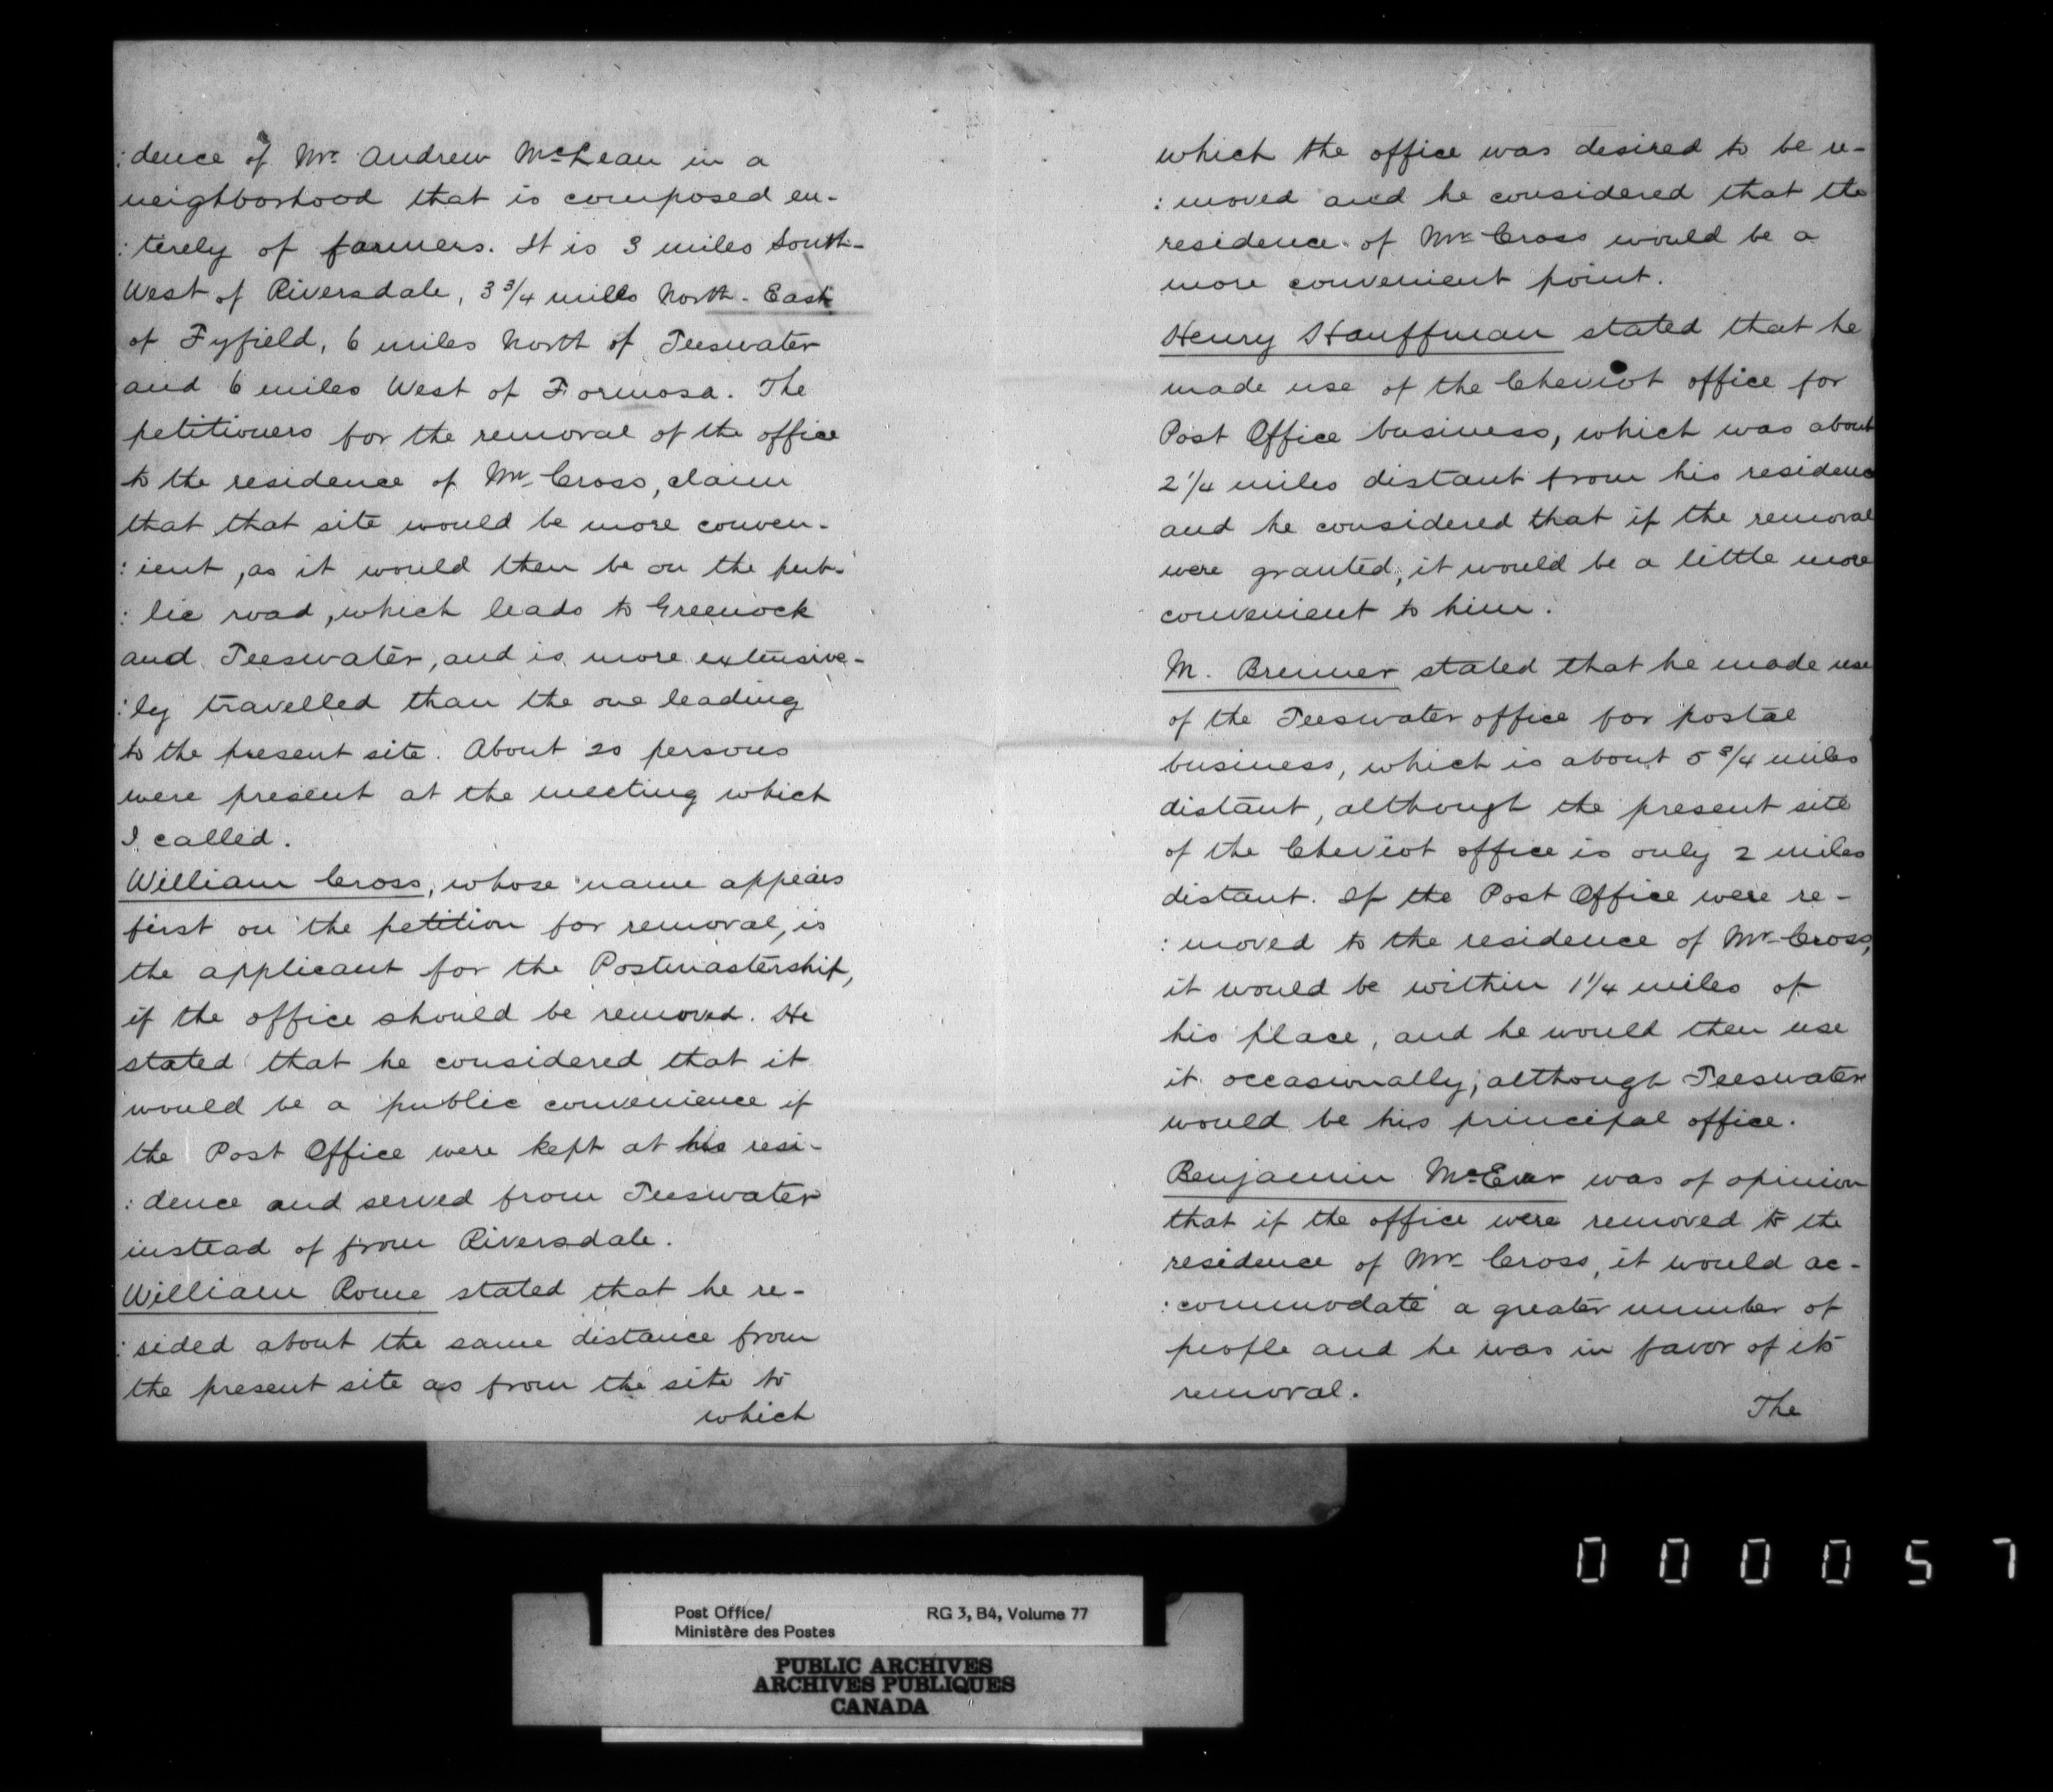 :dence of Mr. Andrew McLean in a
neighborhood that is composed en-
:tirely of farmers. It is 3 miles South-
West of Riversdale, 3 3/4 miles North-East
of Fyfield, 6 miles North of Teeswater
and 6 miles West of Formosa. The
petitioners for the removal of the office
to the residence of Mr. Cross, claim
that that site would be more conven-
:ient, as it would then be on the pub-
:lic road, which leads to Greenock
and Teeswater, and is more extensive-
:ly travelled than the one leading
to the present site. About 20 persons
were present at the meeting which
I called.
William Cross, whose name appears
first on the petition for removal, is
the applicant for the Postmastership,
if the office should be removed. He
stated that he considered that it
would be a public convenience if
the Post Office were kept at his resi-
:dence and served from Teeswater
instead of from Riversdale.
William Rome stated that he re-
:sided about the same distance from
the present site as from the site to
which
which the office was desired to be re-
:moved and he considered that the
residence of Mr. Cross would be a
more convenient point.
Henry Hauffman stated that he
made use of the Cheviot office for
Post Office business, which was about
2 1/4 miles distant from his residence
and he considered that if the removal
were granted, it would be a little more
convenient to him.
M. Brenner stated that he made use
of the Teeswater office for postal
business, which is about 5 3/4 miles
distant, although the present site
of the Cheviot office is only 2 miles
distant. If the Post Office were re-
:moved to the residence of Mr. Cross,
it would be within 1 1/4 miles of
his place, and he would then use
it occasionally, although Teeswater
would be his principal office.
Benjamin was of opinion
that if the office were removed to the
residence of Mr. Cross, it would ac-
:commodate a greater number of
people and he was in favor of its
removal.
The
000057
Post Office/
Ministère des Postes
RG 3, B4, Volume 77
PUBLIC ARCHIVES
ARCHIVES PUBLIQUES
CANADA